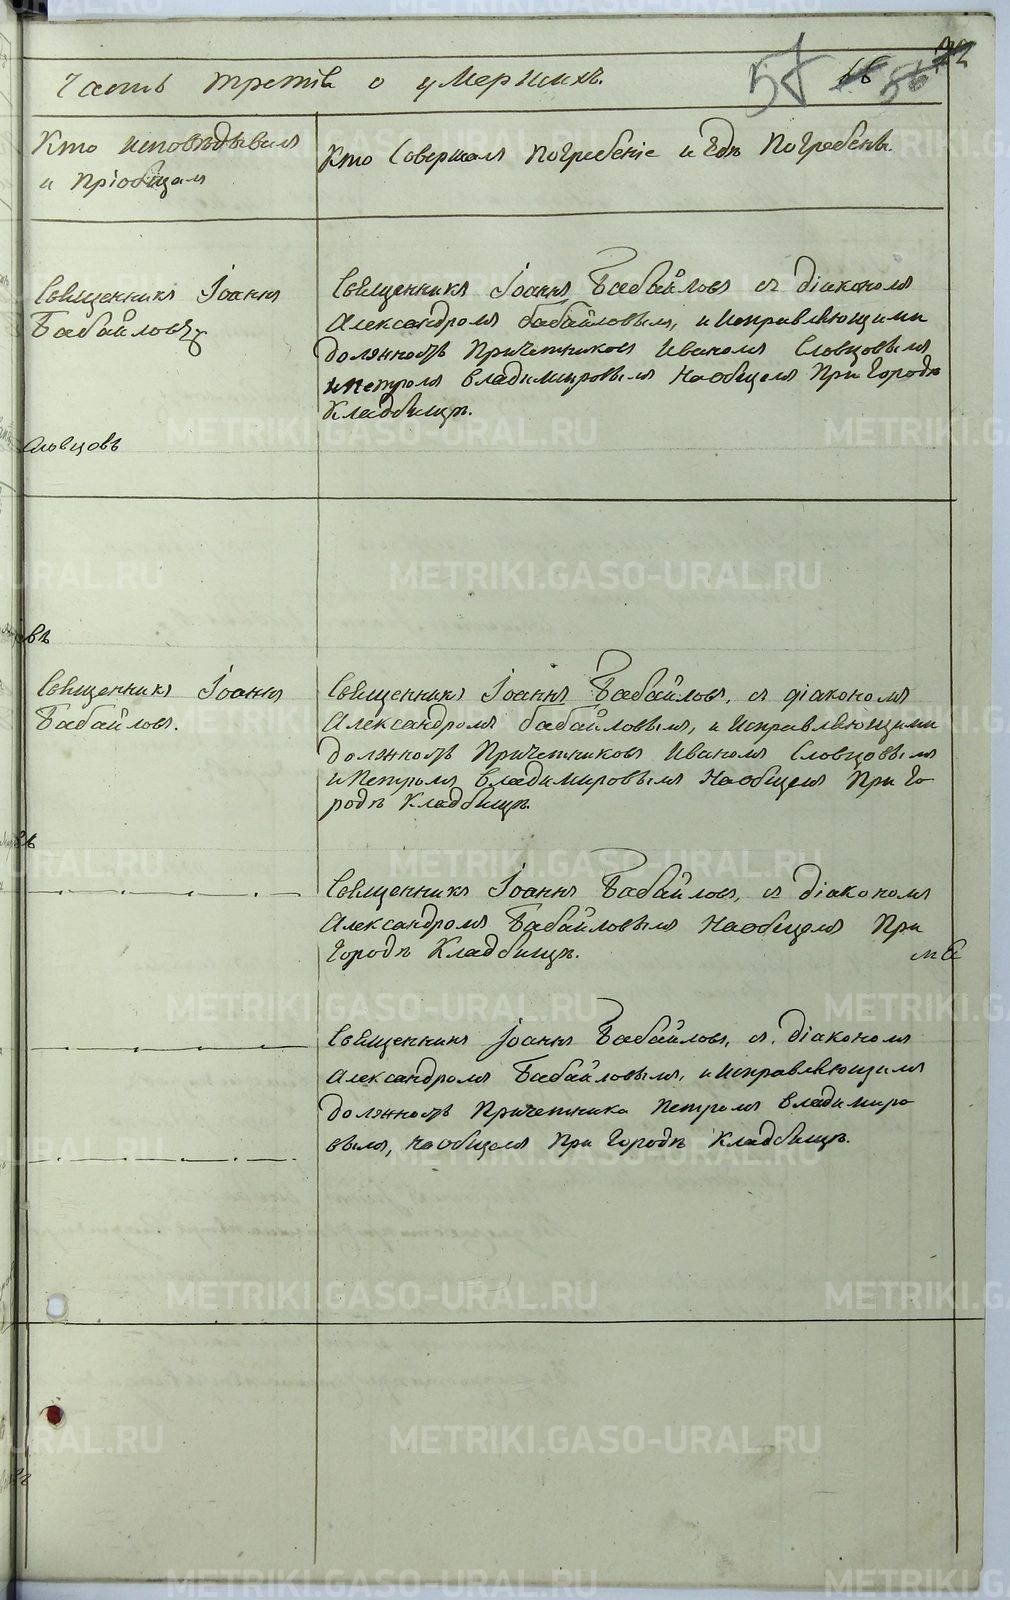 Часть третія о умершихъ.
57 16 56 22
Кто исповѣдывалъ
и пріобщалъ
Кто совершалъ погребеніе и гдѣ погребены.
Священникъ Іоаннъ
Бабайловъ
Священникъ Іоаннъ Бабайловъ съ діакономъ
Александромъ Бабайловымъ, и исправляющими
должность причетниковъ Иваномъ Словцовымъ
и Петромъ Владимировымъ на общемъ при городѣ
кладбищѣ.
Словцовъ
въ
Священникъ Іоаннъ
Бабайловъ.
Священникъ Іоаннъ Бабайловъ, съ діакономъ
Александромъ Бабайловымъ, и исправляющими
должность причетниковъ Иваномъ Словцовымъ
и Петромъ Владимировымъ на общемъ при го-
родѣ кладбищѣ.
Священникъ Іоаннъ Бабайловъ, съ діакономъ
Александромъ Бабайловымъ на общемъ при
городѣ кладбищѣ.
Священникъ Іоаннъ Бабайловъ, съ діакономъ
Александромъ Бабайловымъ, и исправляющимъ
должность причетника Петромъ Владимиро
вымъ, на общемъ при городѣ кладбищѣ.
METRIKI.GASO-URAL.RU